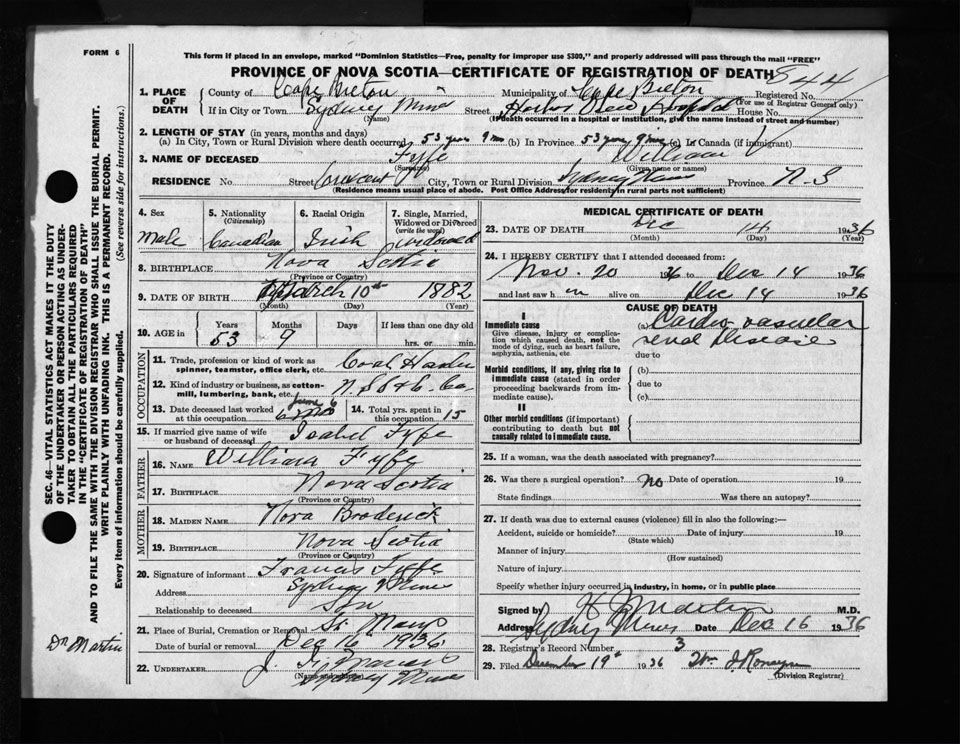 FORM 6
This form if placed in an envelope, marked "Dominion Statistics—Free, penalty for improper use $300," and properly addressed will pass through the mail "FREE"
PROVINCE OF NOVA SCOTIA—CERTIFICATE OF REGISTRATION OF DEATH
844
1. PLACE OF DEATH
County of Cape Breton Municipality of Cape Breton Registered No.
(For use of Registrar General only)
If in City or Town Sydney Mines Street Harbor View Hospital House No.
(Name) (If death occurred in a hospital or institution, give the name instead of street and number)
2. LENGTH OF STAY (in years, months and days)
(a) In City, Town or Rural Division where death occurred 53 years 9 mo (b) In Province 53 years 9 mo (c) In Canada (if immigrant)
3. NAME OF DECEASED Fyffe William
(Surname) (Given name or names)
RESIDENCE No. Street Crescent City, Town or Rural Division Sydney Mines Province N. S
(Residence means usual place of abode. Post Office Address for residents in rural parts not sufficient)
4. Sex Male
5. Nationality (Citizenship) Canadian
6. Racial Origin Irish
7. Single, Married, Widowed or Divorced (write the word) widowed
8. BIRTHPLACE Nova Scotia
(Province or Country)
9. DATE OF BIRTH March 10th 1882
(Month) (Day) (Year)
10. AGE in Years Months Days If less than one day old
53 9 hrs. or min.
OCCUPATION
11. Trade, profession or kind of work as spinner, teamster, office clerk, etc. Coal
12. Kind of industry or business, as cotton-mill, lumbering, bank, etc. N. S. S & C Co.
13. Date deceased last worked at this occupation June 6
14. Total yrs. spent in this occupation 15
15. If married give name of wife or husband of deceased Isabel Fyfe
FATHER
16. NAME William Fyfe
17. BIRTHPLACE Nova Scotia
(Province or Country)
MOTHER
18. MAIDEN NAME Nora Broderick
19. BIRTHPLACE Nova Scotia
(Province or Country)
20. Signature of informant Francis Fyffe
Address Sydney Mines
Relationship to deceased Son
21. Place of Burial, Cremation or Removal St. Marys
Date of burial or removal Dec 16 1936
22. UNDERTAKER J.
(Name and address) Sydney Mines
MEDICAL CERTIFICATE OF DEATH
23. DATE OF DEATH Dec 14 1936
(Month) (Day) (Year)
24. I HEREBY CERTIFY that I attended deceased from:
Nov. 20 1936 to Dec 14 1936
and last saw h im alive on Dec 14 1936
CAUSE OF DEATH
I
Immediate cause
Give disease, injury or complication which caused death, not the mode of dying, such as heart failure, asphyxia, asthenia, etc.
(a) Cardio vascular
renal Disease
due to
Morbid conditions, if any, giving rise to immediate cause (stated in order proceeding backwards from immediate cause).
(b)
due to
(c)
II
Other morbid conditions (if important) contributing to death but not causally related to immediate cause.
25. If a woman, was the death associated with pregnancy?
26. Was there a surgical operation? no Date of operation 19
State findings Was there an autopsy?
27. If death due to external causes (violence) fill in also the following:—
Accident, suicide or homicide? Date of injury 19
(State which)
Manner of injury
(How sustained)
Nature of injury
Specify whether injury occurred in industry, in home, or in public place
Signed by Martin M.D.
Address Sydney Mines Date Dec 16 1936
28. Registrar's Record Number 3
29. Filed December 19th 1936 Wm J. Ronayne
(Division Registrar)
SEC. 46—VITAL STATISTICS ACT MAKES IT THE DUTY
OF THE UNDERTAKER OR PERSON ACTING AS UNDER-
TAKER TO OBTAIN ALL THE PARTICULARS REQUIRED
IN THE "CERTIFICATE OF REGISTRATION OF DEATH"
AND TO FILE THE SAME WITH THE DIVISION REGISTRAR WHO SHALL ISSUE THE BURIAL PERMIT.
WRITE PLAINLY WITH UNFADING INK. THIS IS A PERMANENT RECORD.
Every item of information should be carefully supplied. (See reverse side for instructions.)
Dr Martin